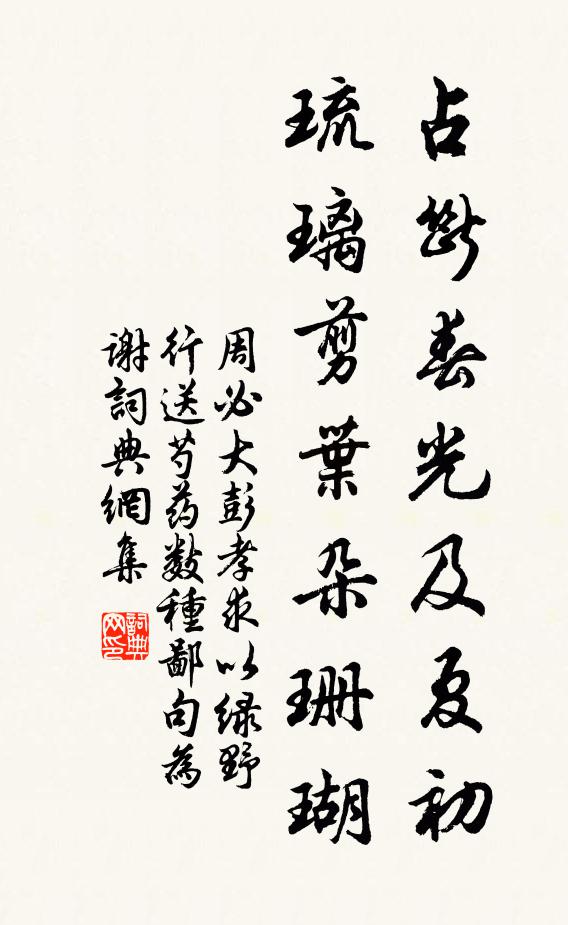 占斷春光及夏初
琉璃剪葉朵珊瑚
周必大彭孝求以緑野
行送芍药数種鄙句為
謝詞典網集
詞典网印